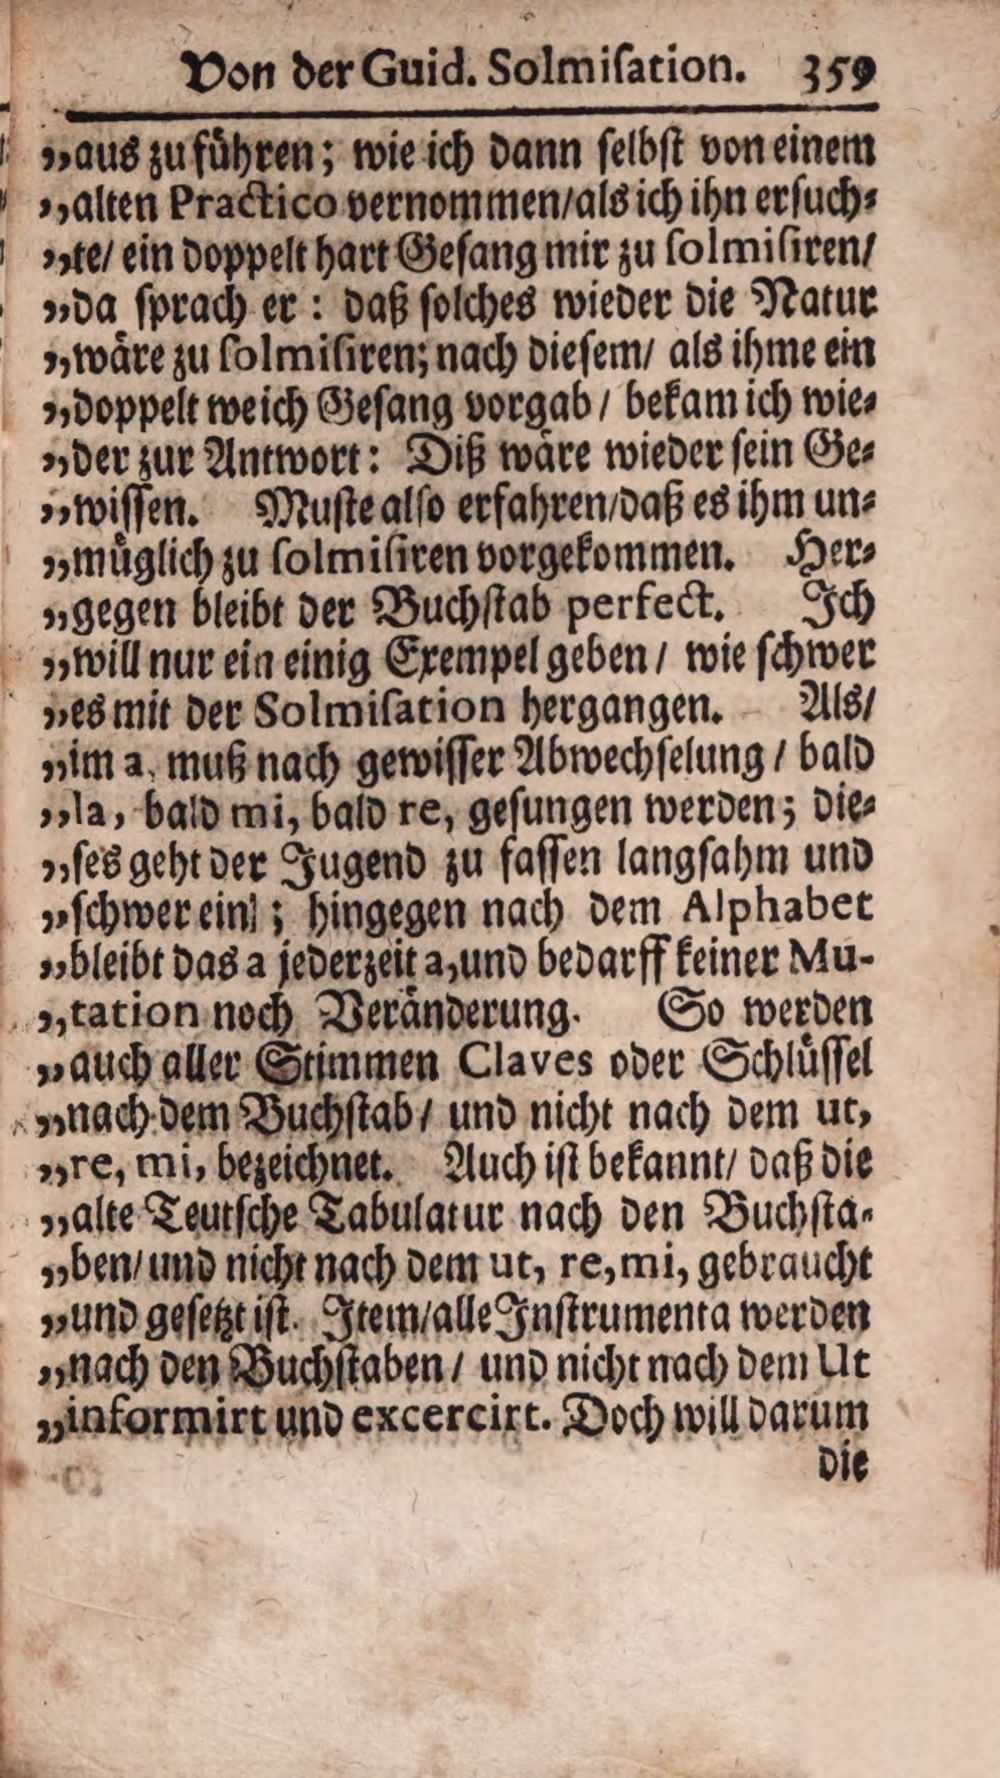 Von der Guid. Solmiſation. 359
„aus zu führen; wie ich dann ſelbſt von einem
„alten Practico vernommen/als ich ihn erſuch⸗
„te/ ein doppelt hart Geſang mir zu ſolmiſiren/
„da ſprach er: daß ſolches wieder die Natur
„wäre zu ſolmiſiren; nach dieſem/ als ihme ein
„doppelt weich Geſang vorgab/ bekam ich wie⸗
„der zur Antwort: Diß wäre wieder ſein Ge⸗
„wiſſen. Muſte alſo erfahren/daß es ihm un⸗
„müglich zu ſolmiſiren vorgekommen. Her⸗
„gegen bleibt der Buchſtab perfect. Ich
„will nur ein einig Exempel geben/ wie ſchwer
„es mit der Solmiſation hergangen. Als/
„im a, muß nach gewiſſer Abwechſelung/ bald
„la, bald mi, bald re, geſungen werden; die⸗
„ſes geht der Jugend zu faſſen langſahm und
„ſchwer ein; hingegen nach dem Alphabet
„bleibt das a jederzeit a, und bedarff keiner Mu-
„tation noch Veränderung. So werden
„auch aller Stimmen Claves oder Schlüſſel
„nach dem Buchſtab/ und nicht nach dem ut,
„re, mi, bezeichnet. Auch iſt bekannt/ daß die
„alte Teutſche Tabulatur nach den Buchſta⸗
„ben/und nicht nach dem ut, re, mi, gebraucht
„und geſetzt iſt. Item/alle Inſtrumenta werden
„nach den Buchſtaben/ und nicht nach dem Ut
„informirt und excercirt. Doch will darum
die